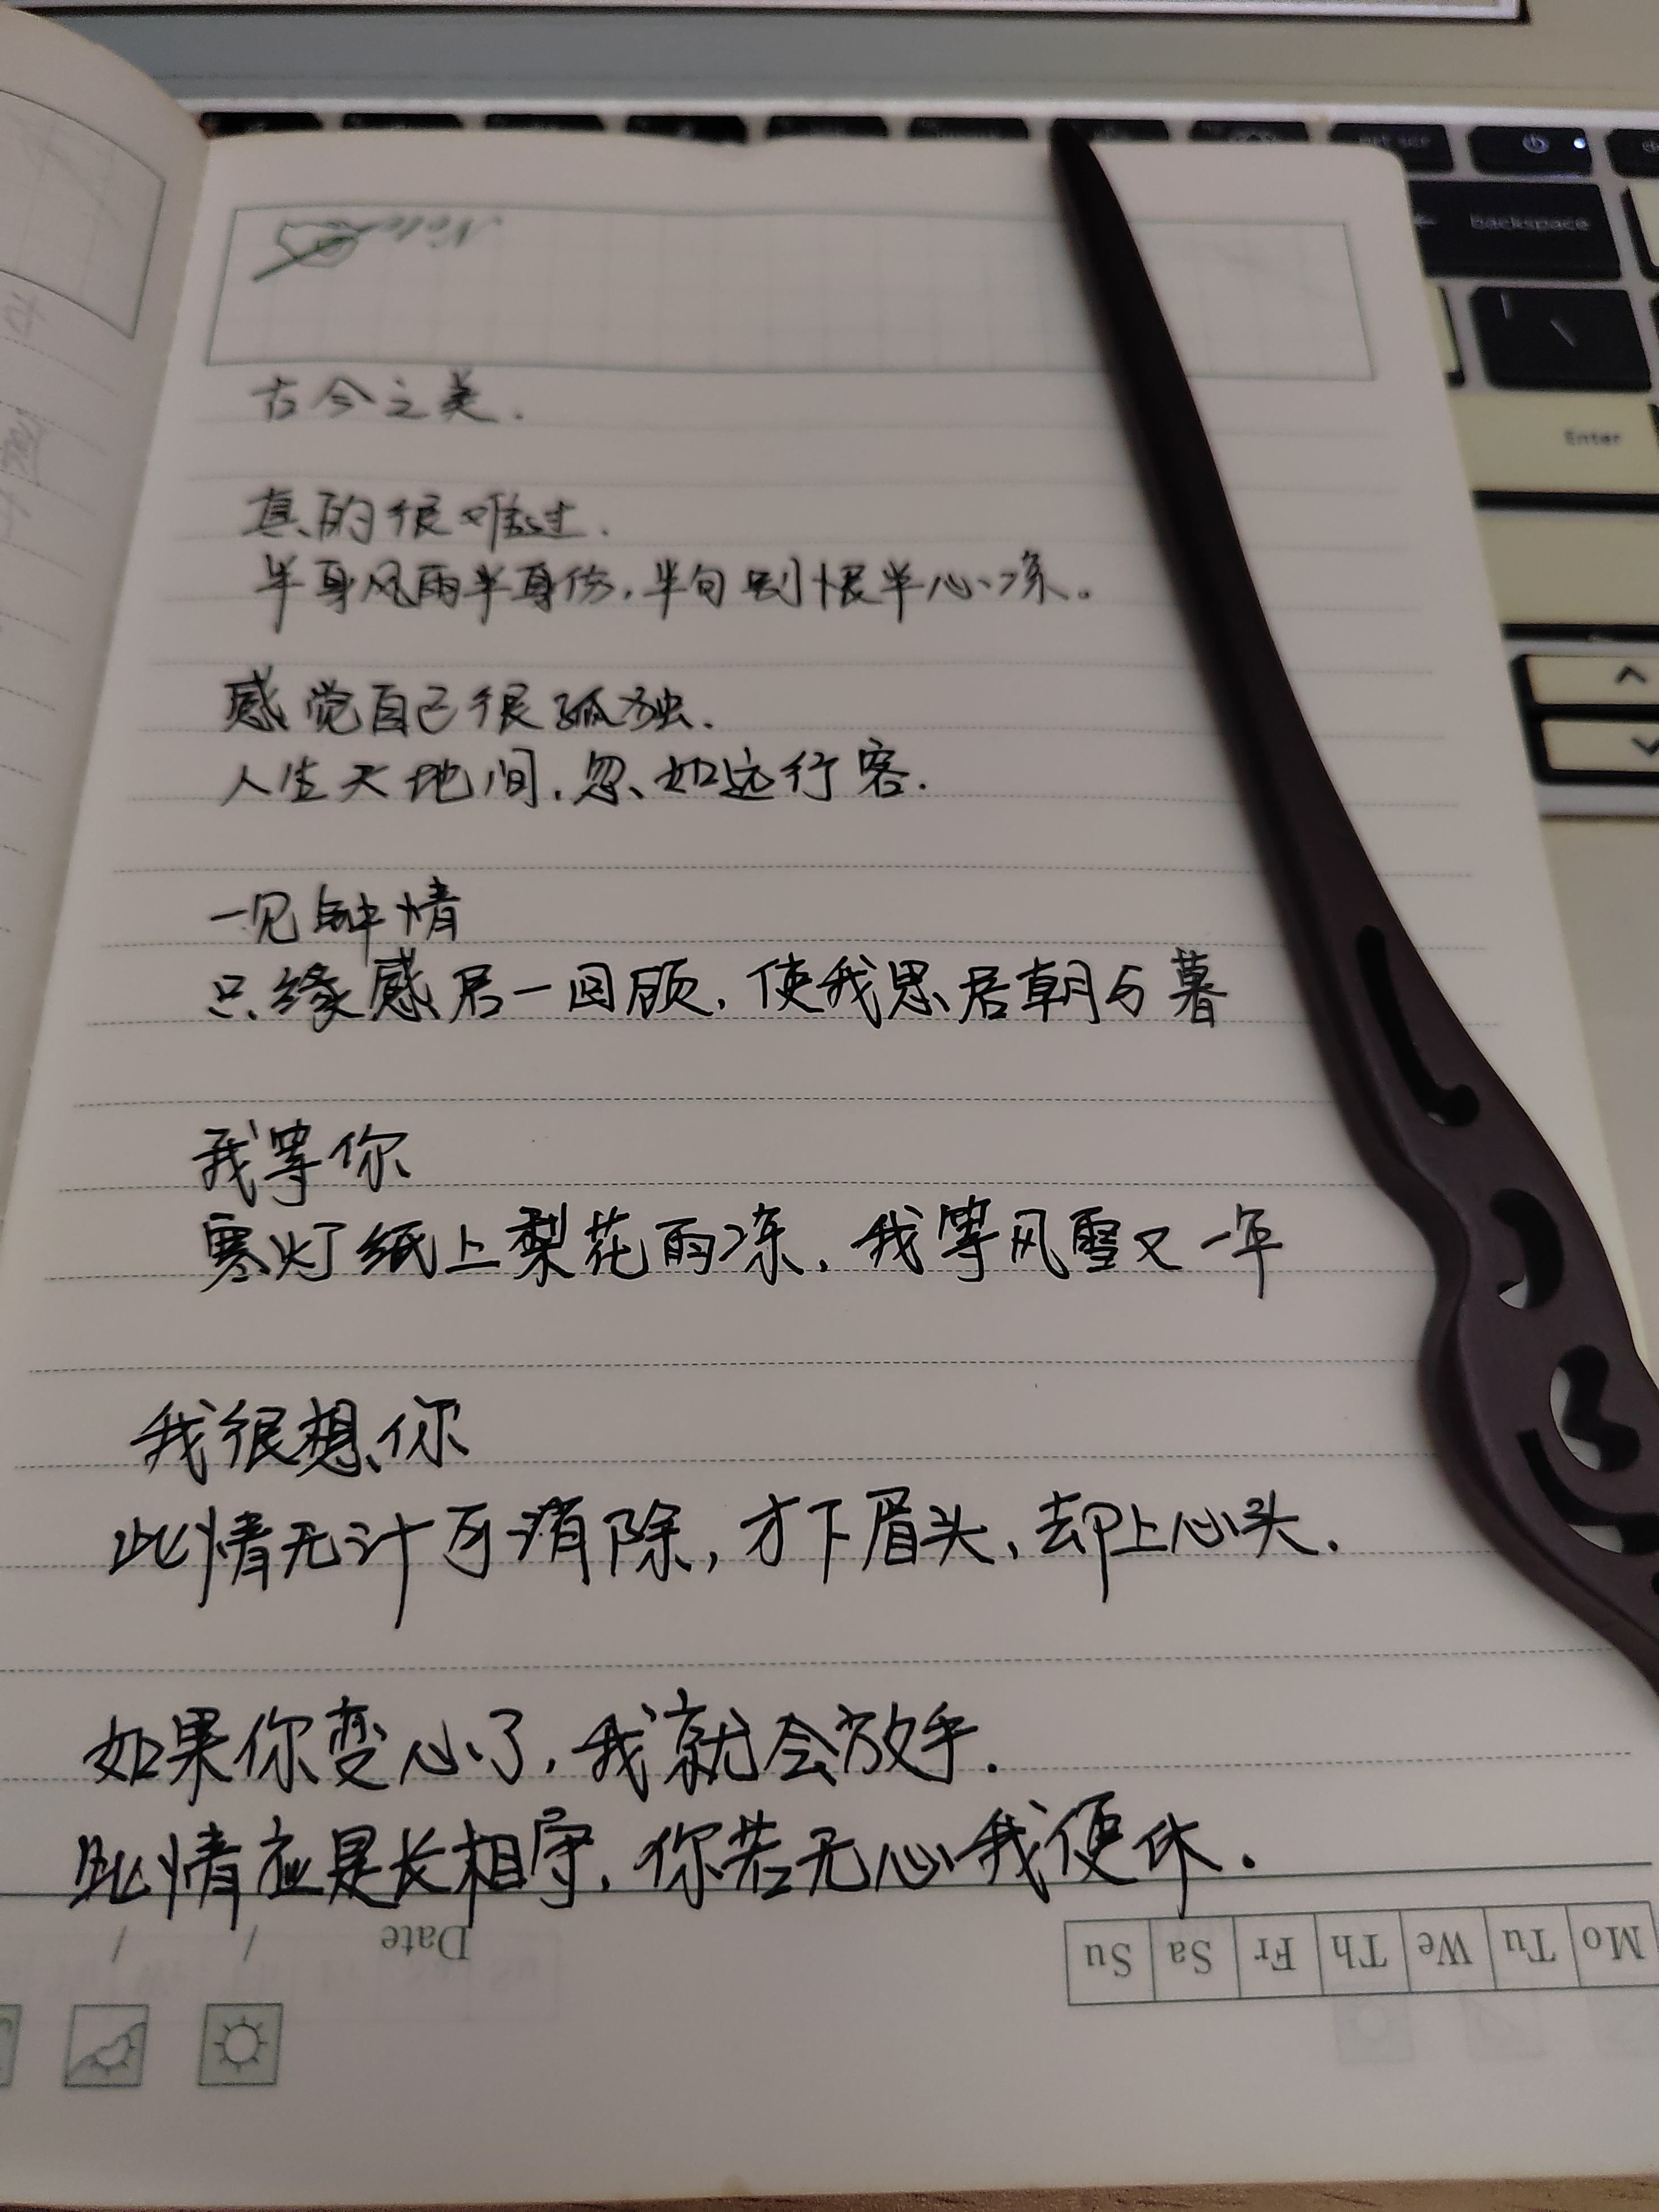 backspace
Enter
Note
古今之美.
真的很难过.
半身风雨半身伤,半句别恨半心凉。
感觉自己很孤独.
人生天地间,忽如远行客.
一见钟情
只缘感君一回顾,使我思君朝与暮
我等你
寒灯纸上梨花雨凉,我等风雪又一年
我很想你
此情无计可消除,才下眉头,却上心头.
如果你变心了,我就会放手.
此情应是长相守,你若无心我便休.
Date / /
Mo Tu We Th Fr Sa Su